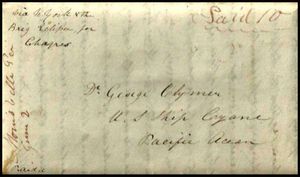 Via N. York & the
Brig Eclipse for
Chagres
Paid 10
Dr. George Clymer
U. S. Ship Cyane
Pacific Ocean
Paid